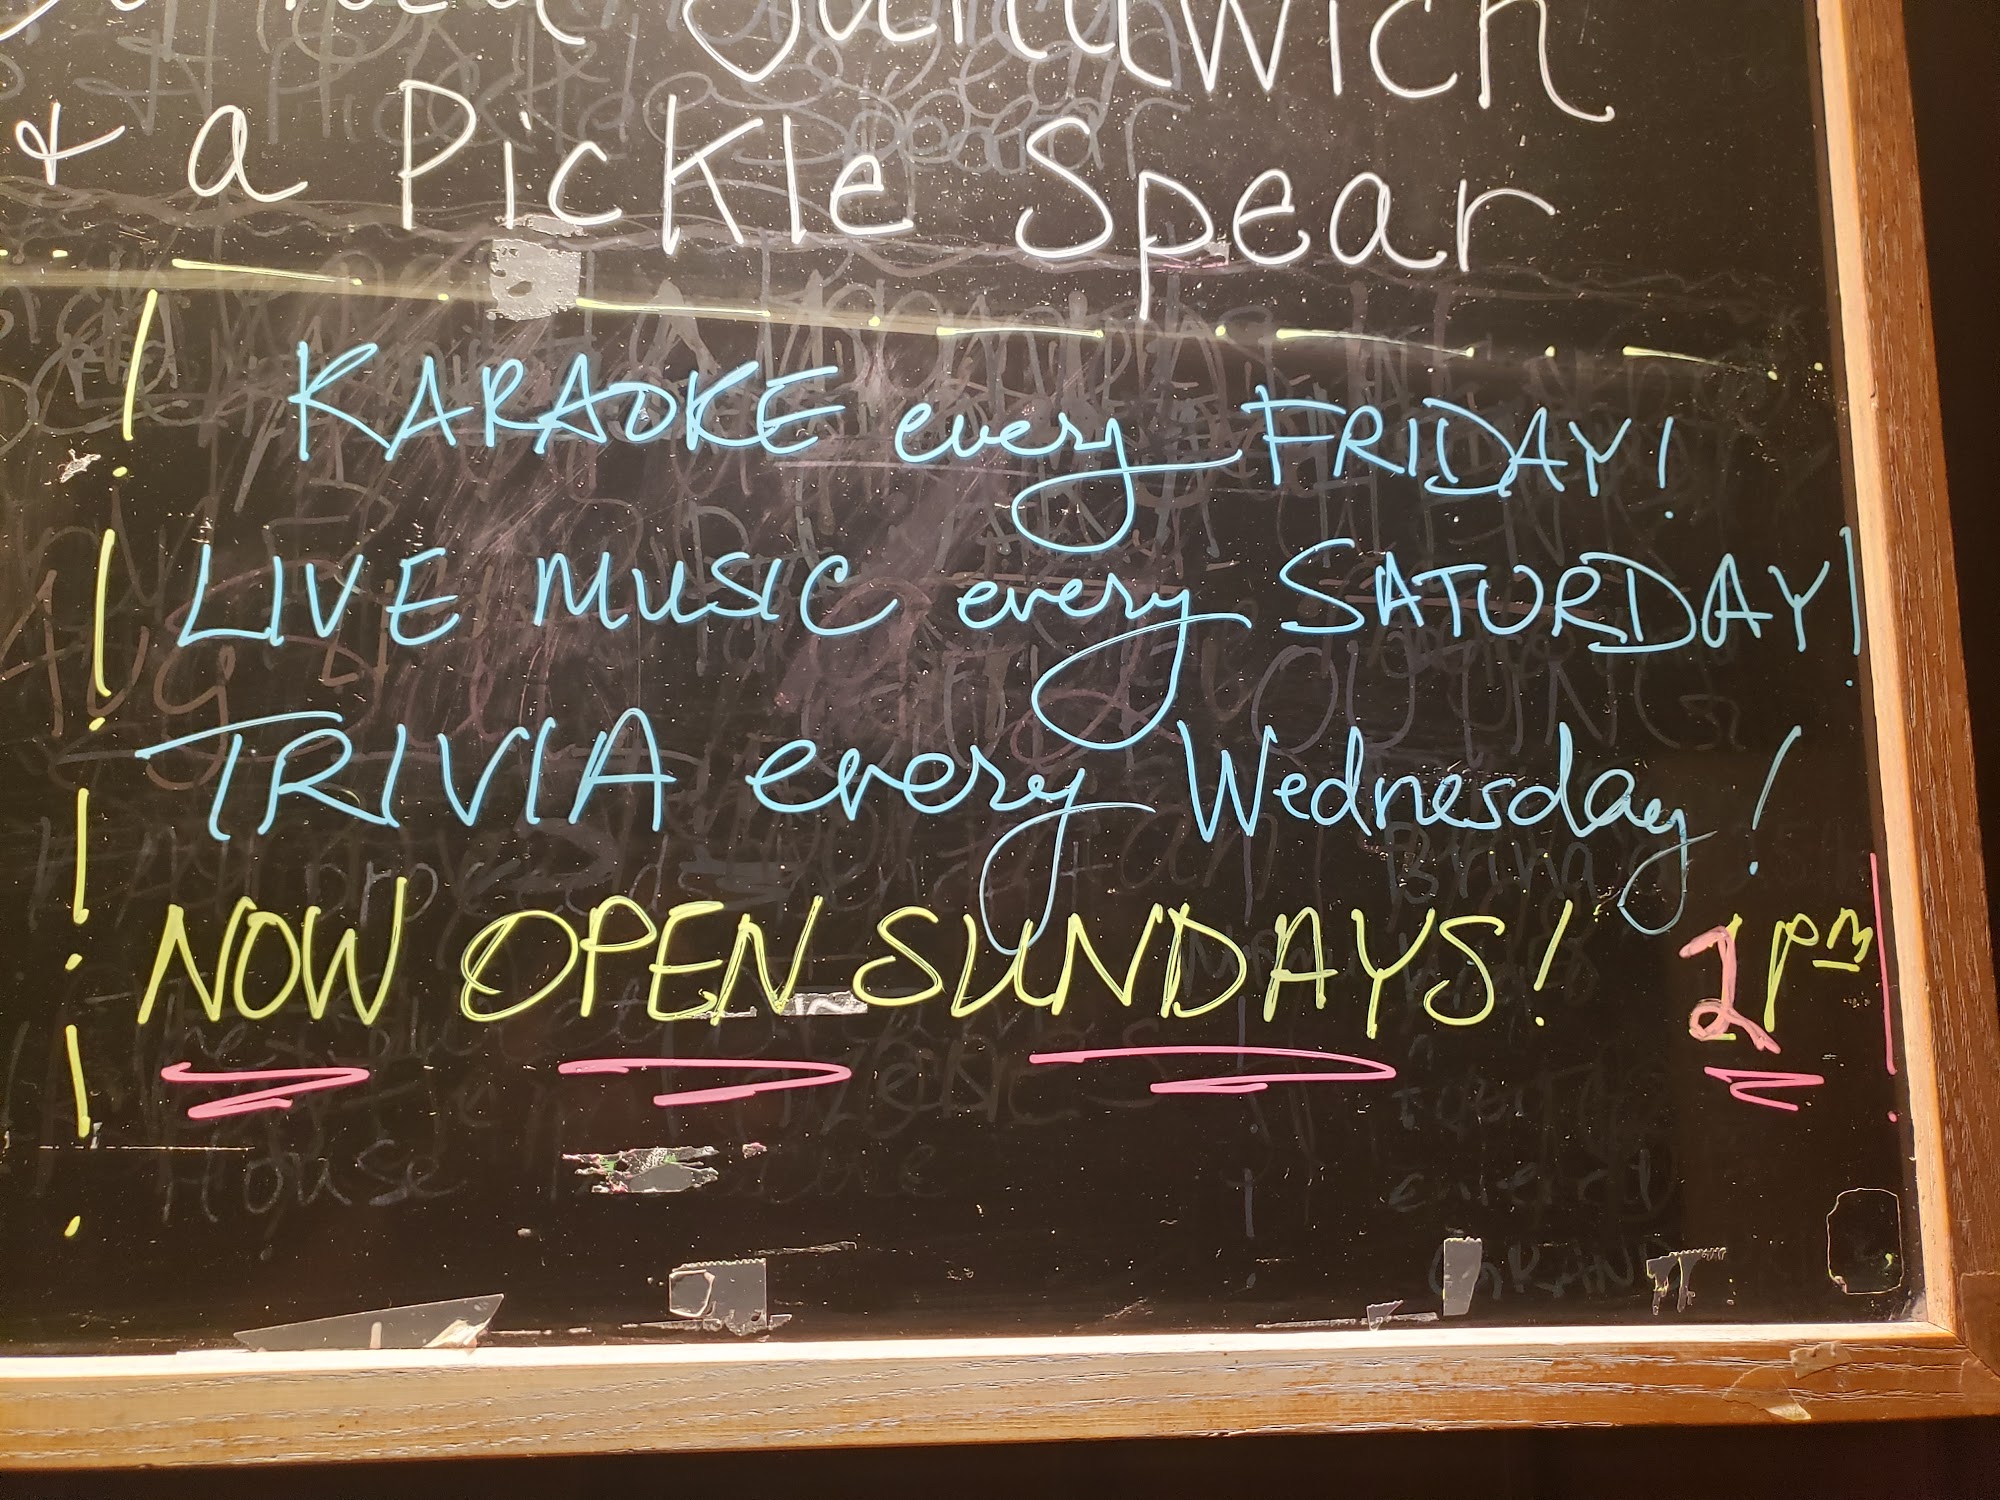 Sandwich
+ a Pickle Spear
KARAOKE every FRIDAY!
LIVE MUSIC every SATURDAY!
TRIVIA every Wednesday!
NOW OPEN SUNDAYS! 2pm
House